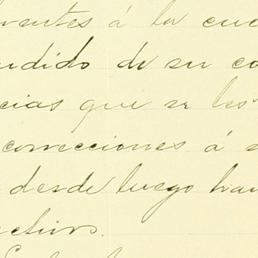 ventes á la cue
ndido de su co
cias que se les
correcciones á s
desde luego han